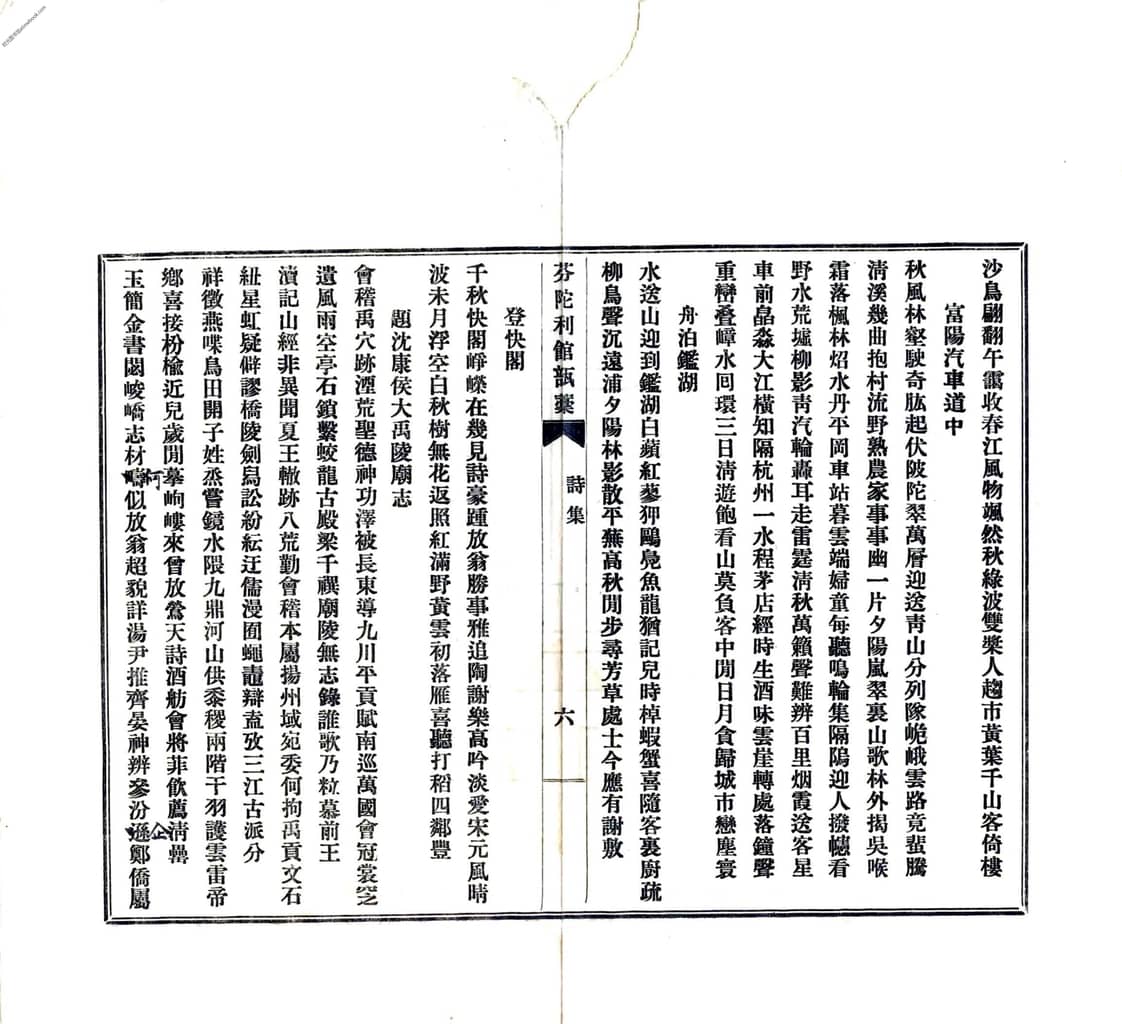 沙鳥翩翻午靄收春江風物颯然秋綠波雙槳人趨市黃葉千山客倚樓
富陽汽車道中
秋風林壑駛奇肱起伏陂陀翠萬層迎送靑山分列隊峗峨雲路竟蜚騰
淸溪幾曲抱村流野熟農家事事幽一片夕陽嵐翠裏山歌林外揭吳喉
霜落楓林炤水丹平岡車站暮雲端婦童每聽鳴輪集隔隖迎人撥幰看
野水荒墟柳影靑汽輪轟耳走雷霆淸秋萬籟聲難辨百里烟霞送客星
車前皛淼大江橫知隔杭州一水程茅店經時生酒味雲崖轉處落鐘聲
重巒叠嶂水囘環三日淸遊飽看山莫負客中閒日月貪歸城市戀塵寰
舟泊鑑湖
水送山迎到鑑湖白蘋紅蓼狎鷗鳧魚龍猶記兒時棹蝦蟹喜隨客裏廚疏
柳鳥聲沉遠浦夕陽林影散平蕪高秋閒步尋芳草處士今應有謝敷
芬陀利館瓿藁
詩集
六
登快閣
千秋快閣崢嶸在幾見詩豪踵放翁勝事雅追陶謝樂高吟淡愛宋元風晴
波未月浮空白秋樹無花返照紅滿野黃雲初落雁喜聽打稻四鄰豐
題沈康侯大禹陵廟志
會稽禹穴跡湮荒聖德神功澤被長東導九川平貢賦南巡萬國會冠裳窆
遺風雨空亭石鎖繫蛟龍古殿梁千禩廟陵無志錄誰歌乃粒慕前王
瀆記山經非異聞夏王轍跡八荒勤會稽本屬揚州域宛委何拘禹貢文石
紐星虹疑僻謬橋陵劍舃訟紛紜迂儒漫囿蠅鼃辯盍攷三江古派分
祥徵燕喋鳥田開子姓烝嘗鏡水隈九鼎河山供黍稷兩階干羽護雲雷帝
鄉喜接枌楡近兒歲閒摹岣嶁來曾放鶯天詩酒舫會將菲飮薦淸罍
玉簡金書閟峻嶠志材疇似放翁超貌詳湯尹推齊晏神辨參汾遜鄭僑屬
何
企